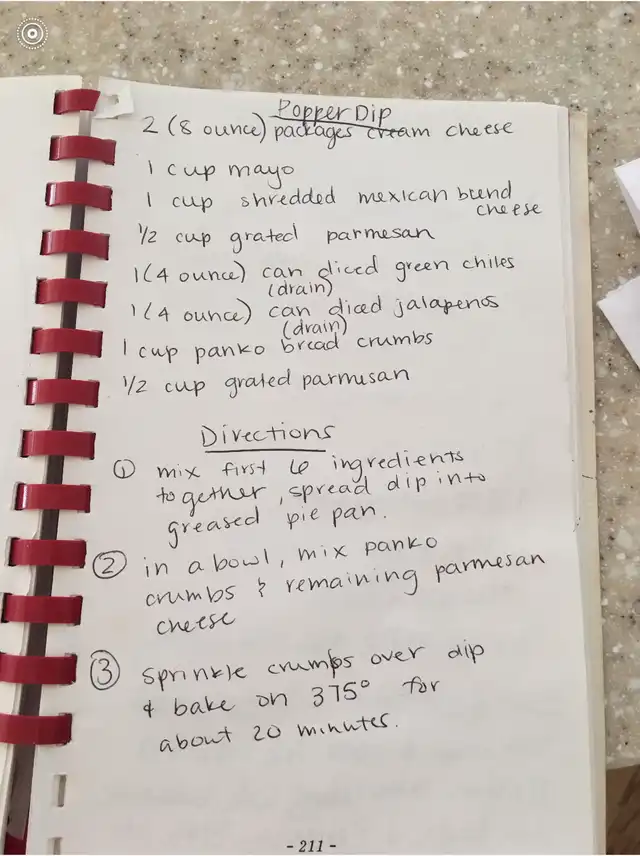 Popper Dip
2 (8 ounce) packages cream cheese
1 cup mayo
1 cup shredded mexican blend
cheese
1/2 cup grated parmesan
1 (4 ounce) can diced green chiles
(drain)
1 (4 ounce) can diced jalapenos
(drain)
1 cup panko bread crumbs
1/2 cup grated parmesan
Directions
① mix first 6 ingredients
together, spread dip into
greased pie pan.
② in a bowl, mix panko
crumbs & remaining parmesan
cheese
③ sprinkle crumbs over dip
& bake on 375° for
about 20 minutes.
- 211 -